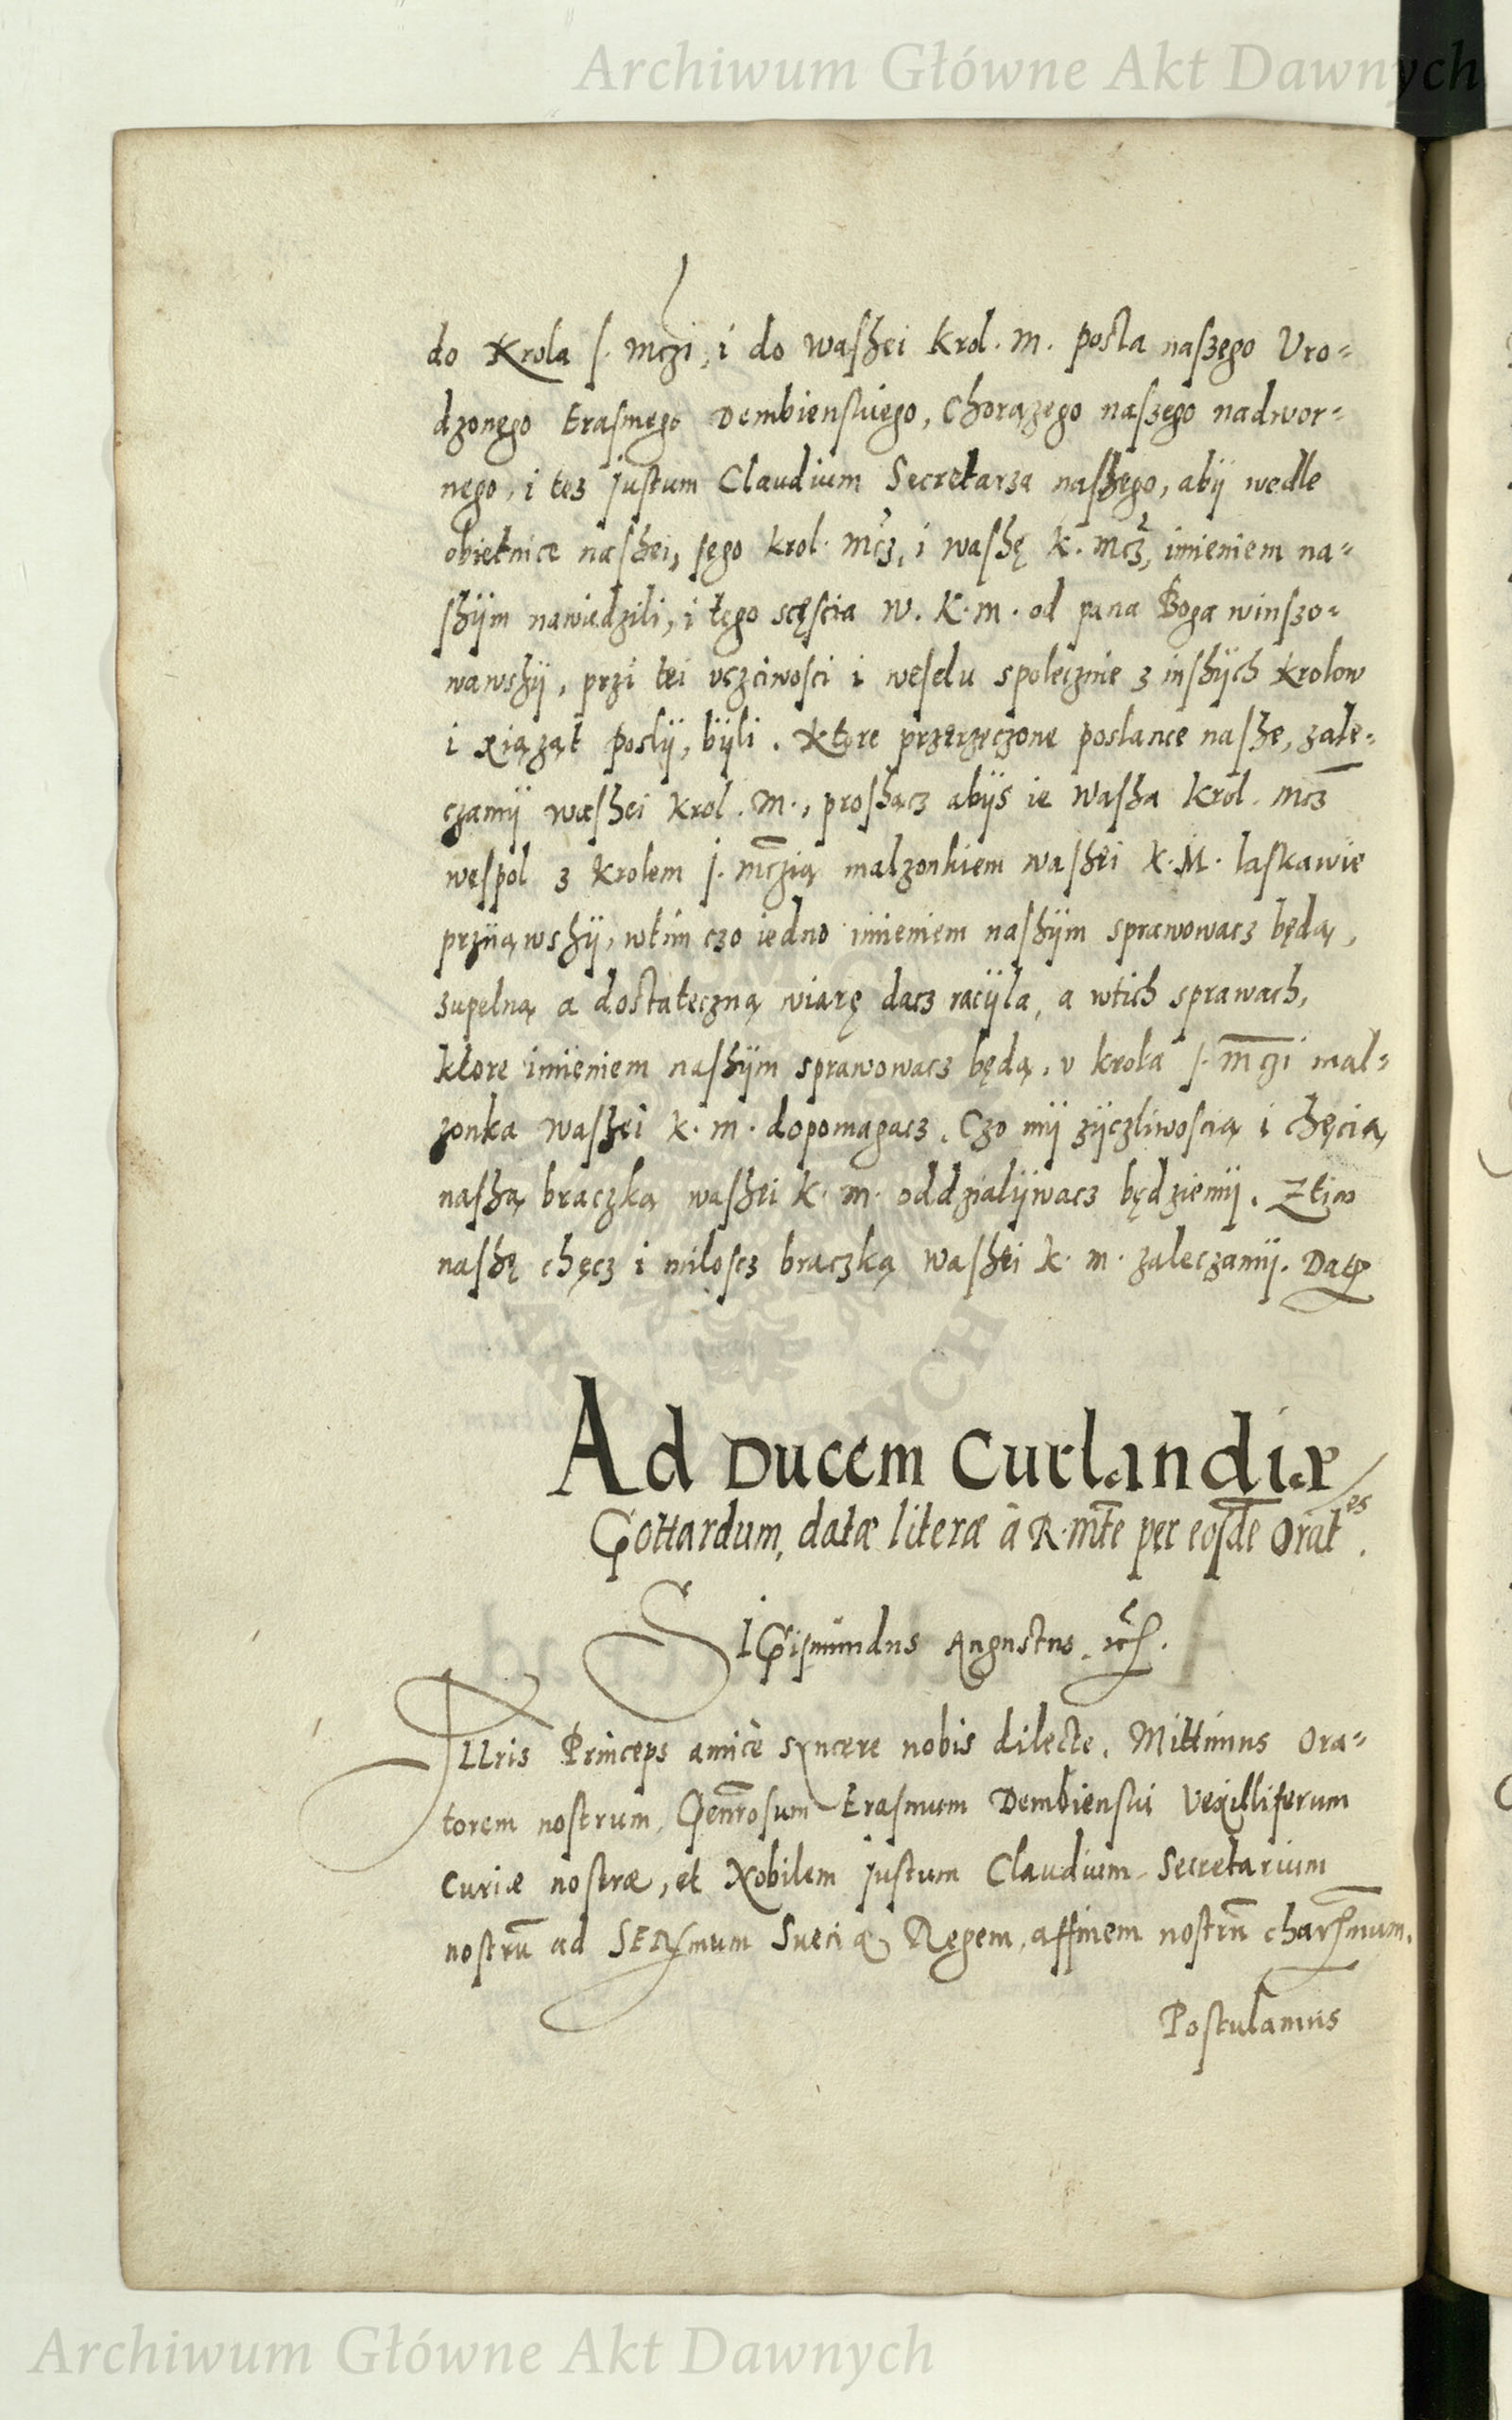 Archiwum Główne Akt Dawnych
do Krola j. mczi, i do washei Krol. m. posła naszego Uro=
dzonego Erasmego Dembienskiego, Chorązego naszego nadwor=
nego, i tez justum Claudium Secretarza nashego, abÿ wedle
obietnice nashei, jego krol. mcz, i washę k. mcz, imieniem na=
shÿm nawiedzili, i tego scęscia w. k. m. od pana Boga winszo=
wawshÿ, przi tei uczciwosci i weselu spolecznie z inshÿch Krolow
i xiążąt poslÿ, bÿli. Ktore przerzeczone poslance nashe, zale=
czamÿ washei Krol. M., proshącz abÿs ie Washa Krol. mcz
wespol z Krolem j. mczią malzonkiem washei K. M. laskawie
przÿąwshÿ, wtim czo iedno imieniem nashÿm sprawowacz będą,
zupelną a dostateczną wiarę dacz racÿla, a wtich sprawach,
ktore imieniem nashÿm sprawowacz będą, u krola j. mczi mal=
zonka washei k. m. dopomagacz. Czo mÿ zÿczliwoscią i chęcią
nashą braczką washei k. m. oddzialÿwacz będziemÿ. Ztim
nashę chęcz i miloscz braczką washei k. m. zaleczamÿ. Datͫ
Ad Ducem Curlandiæ
Gottardum, datæ literæ à R. mte per eosdē Orat^es.
SIGismundus Augustus. etc.
Illris Princeps amice syncere nobis dilecte. Mittimus Ora=
torem nostrum, Genrosum Erasmum Dembienski Vexilliferum
Curiæ nostræ, et Nobilem justum Claudium Secretarium
nostrū ad SERmum Sueciæ Regem, affinem nostrū charsmum.
Postulamus
Archiwum Główne Akt Dawnych